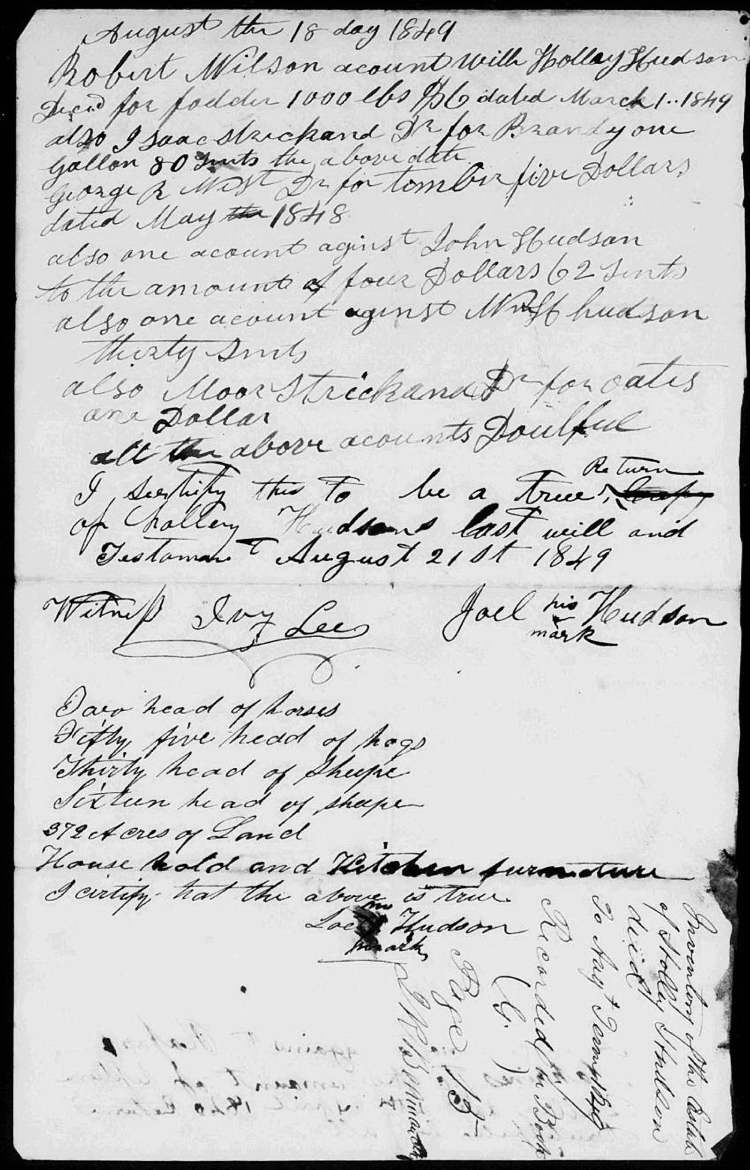 August the 18 day 1849
Robert Wilson acount With Holloy Hudson
Decd for fodder 1000 lbs $6 dated March 1.. 1849
also Isaac strickand Dr for Brandy one
Gallon 80 Sents the above date
George R West Dr for tomber five Dollars
dated May the 1848
also one acount aginst John Hudson
to the amount of four Dollars 62 Sents
also one acount aginst Wm H hudson
thirty Sents
also Moor Strickand Dr for oates
one Dollar
all the above acounts Doulful
Return
I sertify this to be a true
of hollery Hudsons last will and
Testament August 21st 1849
Witness Ivy Lee Joel his Hudson
mark
Two head of horses
Fifty five head of hogs
Thirty head of Sheepe
Sixteen head of sheape
372 Acres of Land
House hold and Kitchen furnature
I certify that the above is true
Hudson
mark
Inventory of the Estate
of Holly Hudson
decd
To Augt Term 1849
Recorded in Book
(G.)
Page 15